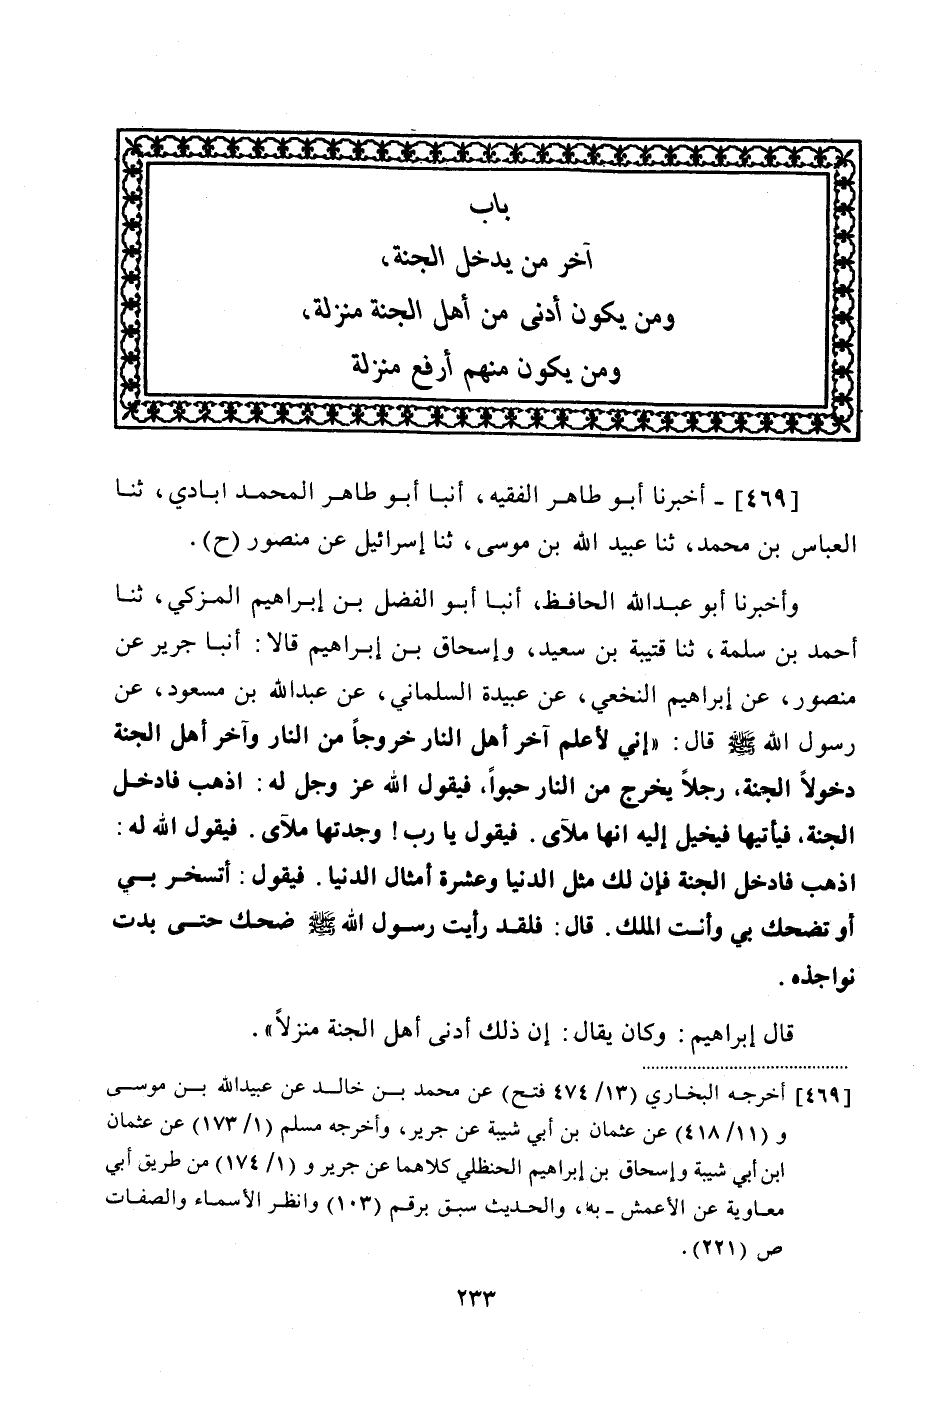 باب
آخر من يدخل الجنة،
ومن يكون أدنى من أهل الجنة منزلة،
ومن يكون منهم أرفع منزلة
[٤٦٩] ـ أخبرنا أبو طاهر الفقيه، أنبا أبو طاهر المحمد ابادي، ثنا
العباس بن محمد، ثنا عبيد الله بن موسى، ثنا إسرائيل عن منصور (ح).
وأخبرنا أبو عبدالله الحافظ، أنبا أبو الفضل بن إبراهيم المزكي، ثنا
أحمد بن سلمة، ثنا قتيبة بن سعيد، وإسحاق بن إبراهيم قالا: أنبا جرير عن
منصور، عن إبراهيم النخعي، عن عبيدة السلماني، عن عبدالله بن مسعود، عن
رسول الله ﷺ قال: «إني لأعلم آخر أهل النار خروجاً من النار وآخر أهل الجنة
دخولاً الجنة، رجلاً يخرج من النار حبواً، فيقول الله عز وجل له: اذهب فادخل
الجنة، فيأتيها فيخيل إليه انها ملآى. فيقول يا رب! وجدتها ملآى. فيقول الله له:
اذهب فادخل الجنة فإن لك مثل الدنيا وعشرة أمثال الدنيا. فيقول: أتسخر بي
أو تضحك بي وأنت الملك. قال: فلقد رأيت رسول الله ﷺ ضحك حتى بدت
نواجذه.
قال إبراهيم: وكان يقال: إن ذلك أدنى أهل الجنة منزلاً».
[٤٦٩] أخرجه البخاري (١٣/ ٤٧٤ فتح) عن محمد بن خالد عن عبيدالله بن موسى
و (١١/ ٤١٨) عن عثمان بن أبي شيبة عن جرير، وأخرجه مسلم (١/ ١٧٣) عن عثمان
ابن أبي شيبة وإسحاق بن إبراهيم الحنظلي كلاهما عن جرير و (١/ ١٧٤) من طريق أبي
معاوية عن الأعمش ـ به، والحديث سبق برقم (١٠٣) وانظر الأسماء والصفات
ص (٢٢١).
٢٣٣